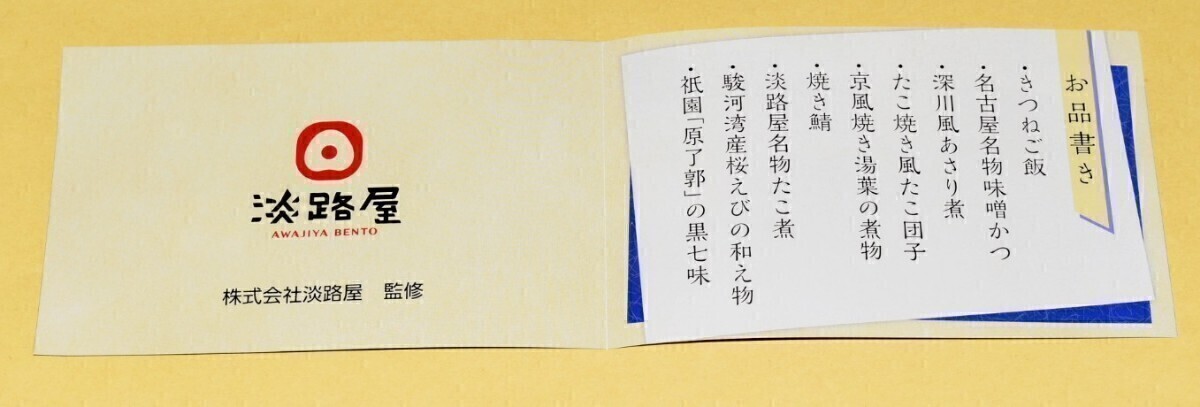 お品書き
・きつねご飯
・名古屋名物味噌かつ
・深川風あさり煮
・たこ焼き風たこ団子
・京風焼き湯葉の煮物
・焼き鯖
・淡路屋名物たこ煮
・駿河湾産桜えびの和え物
・祇園「原了郭」の黒七味
淡路屋
AWAJIYA BENTO
株式会社淡路屋 監修